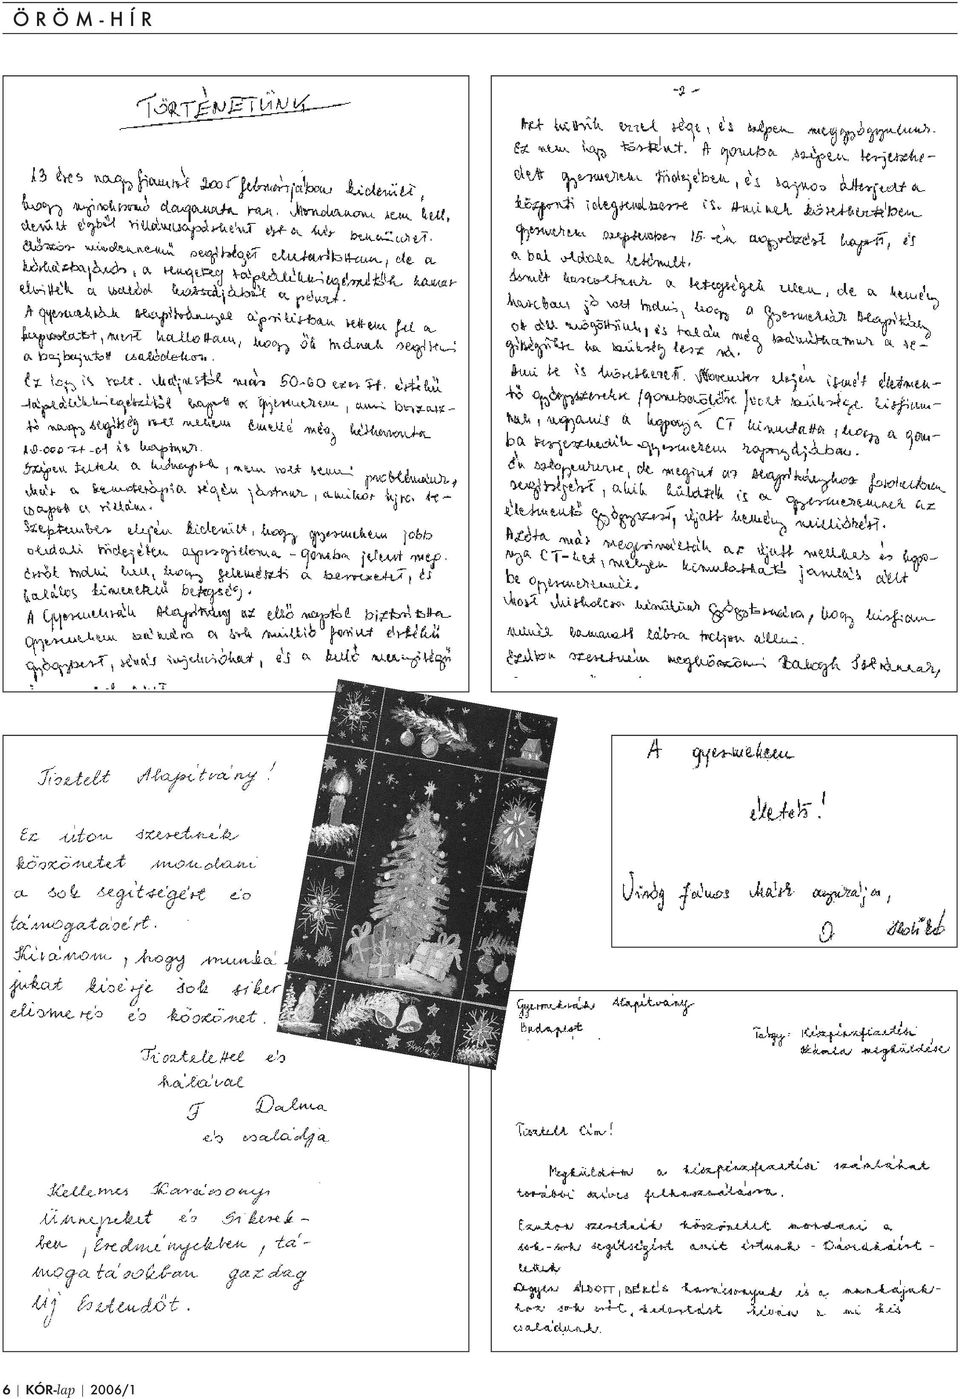 ÖRÖM-HÍR
TÖRTÉNETÜNK
13 éves nagyfiamról 2005 februárjában kiderült,
hogy nyirokcsomó daganata van. Mondanom sem kell,
derült égből villámcsapásként ért a hír bennünket.
Először mindennemű segítséget elutasítottam, de a
kórházbajárás, a rengeteg táplálékkiegészítők hamar
elvitték a család kasszájából a pénzt.
A Gyermekrák Alapítvánnyal áprilisban vettem fel a
kapcsolatot, mert hallottam, hogy ők tudnak segíteni
a bajbajutott családokon.
Ez így is volt. Májustól már 50-60 ezer Ft. értékű
táplálékkiegészítőt kapott a gyermekem, ami borzasz-
tó nagy segítség volt nekem Emellé még kéthavonta
10.000 Ft-ot is kaptunk.
Szépen teltek a hónapok, nem volt semmi problémánk,
már a kemoterápia végén jártunk, amikor újra le-
csapott a villám.
Szeptember elején kiderült, hogy gyermekem jobb
oldali tüdejében aspergilloma - gomba jelent meg.
Erről tudni kell, hogy felemészti a szervezetet, és
halálos kimenetelű betegség.
A Gyermekrák Alapítvány az első naptól biztosította
gyermekem számára a sok millió forint értékű
gyógyszert, vénás injekciókat, és a kellő mennyiségű
-2-
Azt hittük ezzel vége, és szépen meggyógyulunk.
Ez nem így történt. A gomba szépen terjeszke-
dett gyermekem tüdejében, és sajnos átterjedt a
központi idegrendszerre is. Aminek következtében
gyermekem szeptember 15-én agyvérzést kapott, és
a bal oldala lebénult.
Ismét harcoltunk a betegségek ellen, de a kemény
harcban jó volt tudni, hogy a Gyermekrák Alapítvány
ott áll mögöttünk, és talán még számíthatunk a se-
gítségükre ha szükség lesz rá.
Ami be is következett. November elején ismét életmen-
tő gyógyszerekre /gombaölőkre/ volt szüksége kisfiam-
nak, ugyanis a koponya CT kimutatta, hogy a gom-
ba terjeszkedik gyermekem agyában.
Én szégyenkezve, de megint az Alapítványhoz fordultam
segítségért, akik küldték is a gyermekemnek az
életmentő gyógyszert, újabb kemény milliókért.
Azóta már megcsinálták az újabb mellkas és kopo-
nya CT-ket, melyen kimutatható javulás állt
be gyermekemnél.
Most Miskolcra kerülünk Gyógytornára, hogy kisfiam
minél hamarabb lábra tudjon állni.
Ezúton szeretném megköszönni Balogh Istvánnak,
Tisztelt Alapítvány!
Ez úton szeretnék
köszönetet mondani
a sok segítségért és
támogatásért.
Kívánom, hogy munká-
jukat kisérje sok siker
elismerés és köszönet.
Tisztelettel és
hálával
F Dalma
és családja
Kellemes Karácsonyi
Ünnepeket és Sikerek-
ben, Eredményekben, tá-
mogatásokban gazdag
Új Esztendőt.
A gyermekem
életét!
Virág János Márk anyukája,
D Andrásné
Gyermekrák Alapítvány
Budapest
Tárgy: Készpénzfizetési
számla megküldése
Tisztelt Cím!
Megküldöm a készpénzfizetési számlákat
további szíves felhasználásra.
Ezúton szeretnék köszönetet mondani a
sok-sok segítségért amit értünk - Dávidkáért -
tettek
Legyen ÁLDOTT, BÉKÉS karácsonyuk és a munkájuk-
hoz sok erőt, kitartást kíván a mi kis
családunk.
6 | KÓR-lap | 2006/1